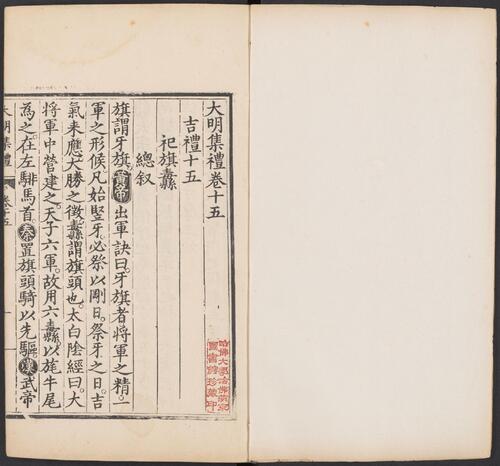 大明集禮卷十五
吉禮十五
祀旗纛
總敘
旗謂牙旗黃帝出軍訣曰牙旗者將軍之精一
軍之形候凡始竪牙必祭以剛日祭牙之日吉
氣来應大勝之徵纛謂旗頭也太白陰經曰大
將軍中營建之天子六軍故用六纛以旄牛尾
為之在左騑馬首秦置旗頭騎以先驅漢武帝
大明集禮 卷十五 一
哈佛大學哈佛燕京
圖書館珍藏印